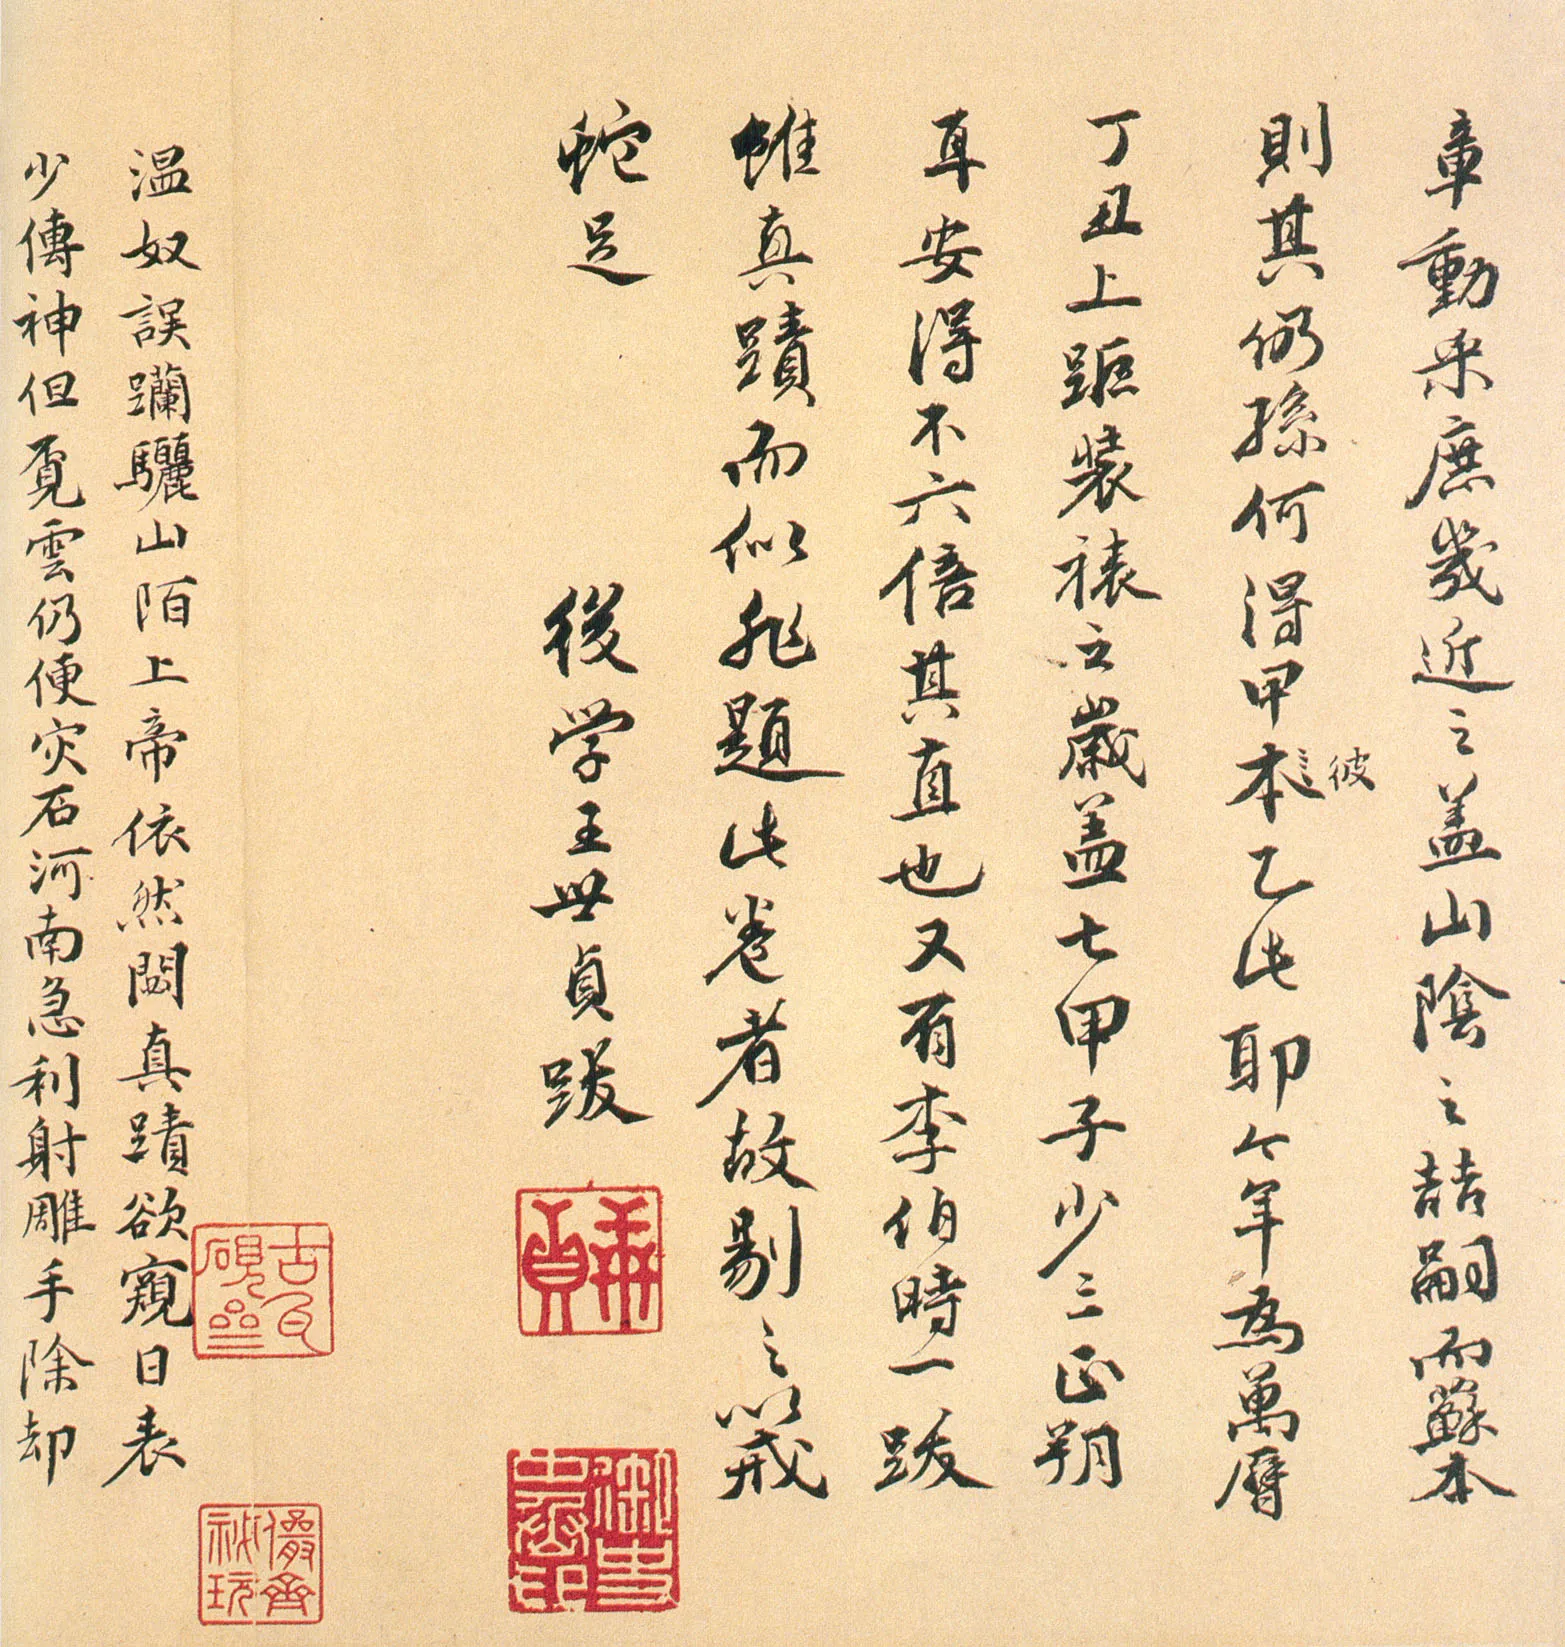 章動采庶幾近之蓋山陰之喆嗣而蘇本
則其仍孫何得甲本乙此耶今年為萬曆
彼
丁丑上距裝裱之歲蓋七甲子少三正朔
耳安得不六倍其直也又有李伯時一跋
雖真蹟而似非題此卷者故剔之以戒
蛇足
後學王世貞跋
元美
貞
溫奴誤躪驪山陌上帝依然閟真蹟欲窺日表
少傳神但覓雲仍便灾石河南急利射雕手除却
古瓦
硯
儼齋
祕玩